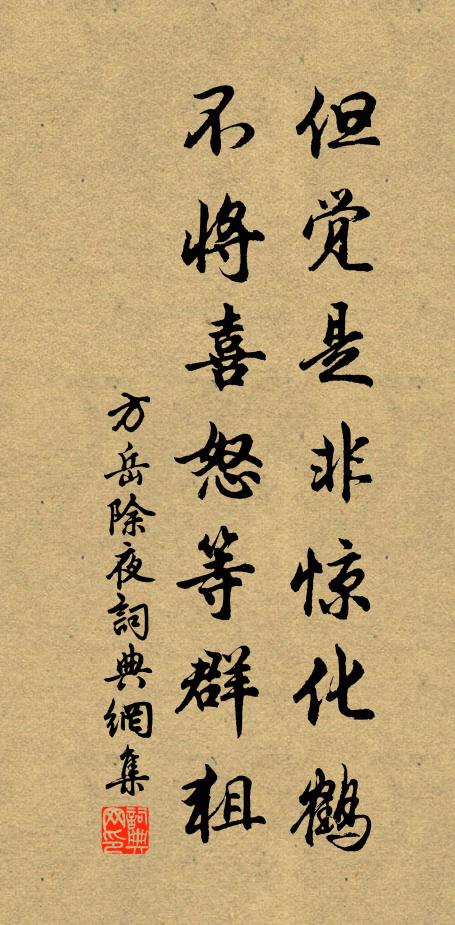 但觉是非惊化鹤
不将喜怒等群狙
方岳除夜詞典網集
詞典网印